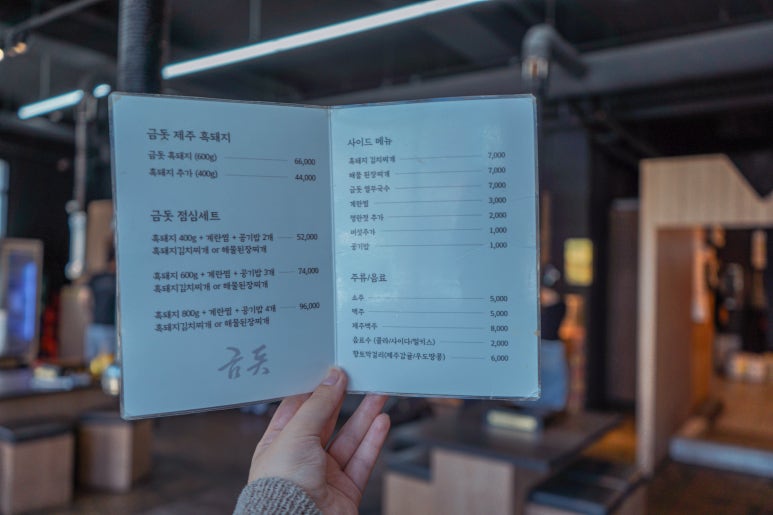 금돗 제주 흑돼지
금돗 흑돼지 (600g) 66,000
흑돼지 추가 (400g) 44,000
금돗 점심세트
흑돼지 400g + 계란찜 + 공기밥 2개 52,000
흑돼지김치찌개 or 해물된장찌개
흑돼지 600g + 계란찜 + 공기밥 3개 74,000
흑돼지김치찌개 or 해물된장찌개
흑돼지 800g + 계란찜 + 공기밥 4개 96,000
흑돼지김치찌개 or 해물된장찌개
금돗
사이드 메뉴
흑돼지 김치찌개 7,000
해물 된장찌개 7,000
금돗 열무국수 7,000
계란찜 3,000
명란젓 추가 2,000
버섯추가 1,000
공기밥 1,000
주류/음료
소주 5,000
맥주 5,000
제주맥주 8,000
음료수 (콜라/사이다/밀키스) 2,000
향토막걸리(제주감귤/우도땅콩) 6,000